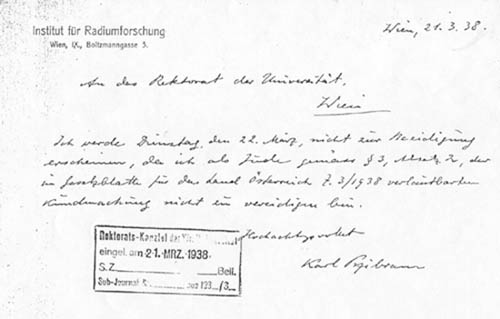 Institut für Radiumforschung
Wien, IX., Boltzmanngasse 3.
Wien, 21. 3. 38.
An das Rektorat der Universität,
Wien
Ich werde Dienstag, den 22. März, nicht zur Beeidigung
erscheinen, da ich als Jude gemäss § 3, Absatz 2, der
im Gesetzblatte für das Land Österreich Z. 3/1938 verlautbarten
Kundmachung nicht zu vereidigen bin.
Hochachtungsvollst
Karl Przibram
Rektorats-Kanzlei der
eingel. am 21. MRZ. 1938
S.Z. Beil.
Sub-Journal aus 193 /3